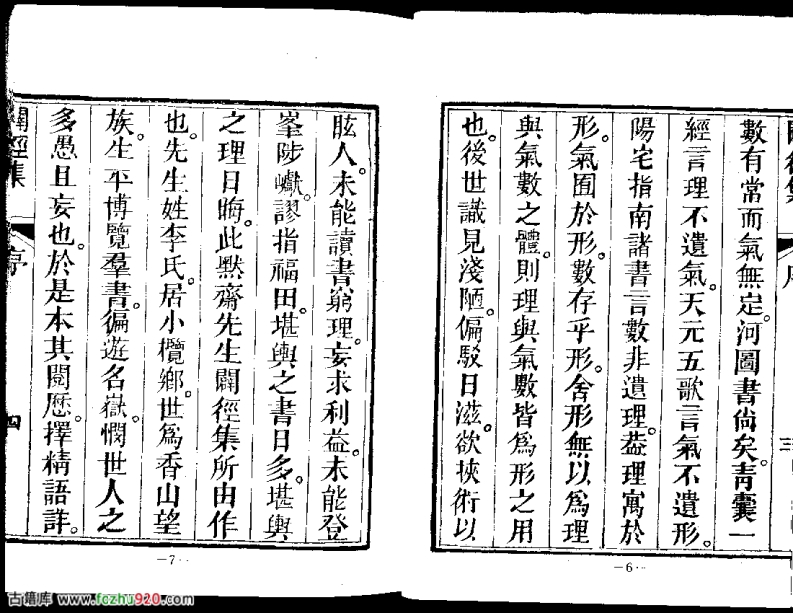 數有常而氣無定。河圖書尚矣。青囊一
經言理不遺氣。天元五歌言氣不遺形。
陽宅指南諸書言數非遺理。葢理寓於
形。氣囿於形。數存乎形。舍形無以爲理
與氣數之體。則理與氣數皆爲形之用
也。後世識見淺陋。偏駁日滋。欲挾術以
三
—6—
眩人。未能讀書窮理。妄求利益。未能登
峯陟巘。謬指福田。堪輿之書日多。堪輿
之理日晦。此默齋先生闢徑集所由作
也。先生姓李氏。居小欖鄉。世爲香山望
族。生平博覽羣書。徧遊名嶽。憫世人之
多愚且妄也。於是本其閱歷。擇精語詳。
闢徑集 序 四
—7—
古籍库 www.fczhu920.com